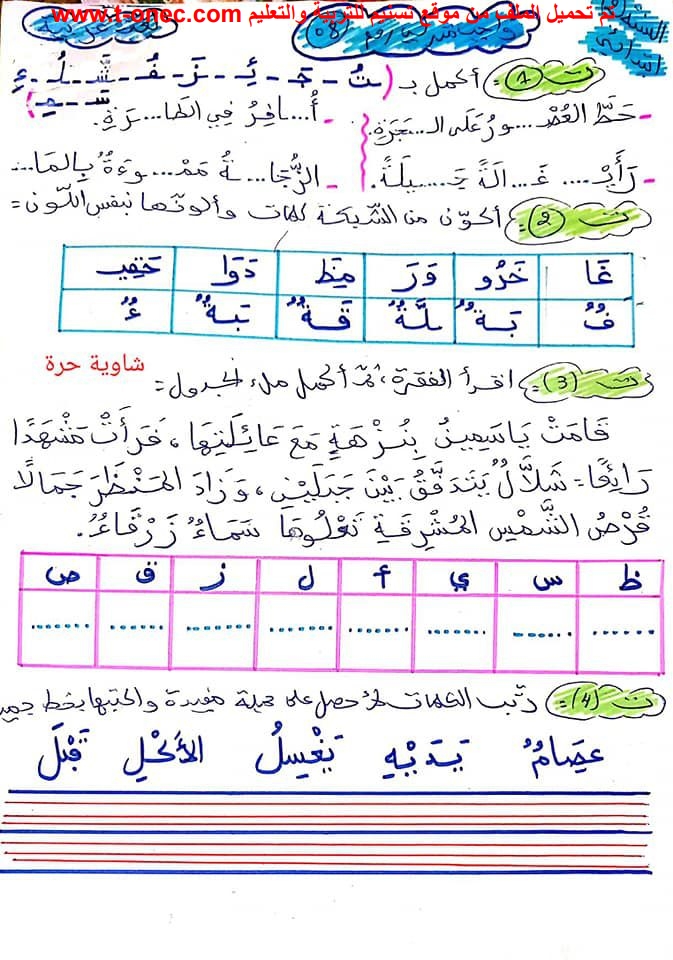 تم تحميل الملف من موقع تسنيم للتربية والتعليم www.t-onec.com
ت (1) = أكمل بـ (تُ - جَـ - ـئِـ - زَ - فُـ - شَّـ - لُـ - ءِ
شَـ - مِـ)
- حَطَّ العُصْـ....ـورُ عَلَى الـ...ـجَرَةِ.
- أُ...ـافِرُ فِي الطَا...ـرَةِ.
- رَأَيْـ.... غَـ...ـالَةً جَـ....ـيلَةً.
- الزُّجَا...ـةُ مَمْـ...ـوءَةٌ بِالمَا...
ت (2) = أكوّن من الشّبكة كلمات وألوّنها بنفس اللّون =
غَا خَرُو وَرَ مِنِطَ دَوَا حَقِيـ
فٌ بَـةٌ لَّـةٌ قَـةٌ ـتَبةٌ ءٌ
شاوية حرة
ت (3) = اقرأ الفقرة، ثمّ أكمل ملء الجدول =
قَامَتْ يَاسَمِينُ بِنُزْهَةٍ مَعَ عَائِلَتِهَا، فَرَأَتْ مَشْهَدًا
رَائِعًا = شَلَّالٌ يَتَدَفَّقُ بَيْنَ جَبَلَيْنِ، وَزَادَ المَنْظَرَ جَمَالًا
قُرْصُ الشَّمْسِ المُشْرِقَةِ تَعْلُوهَا سَمَاءٌ زَرْقَاءُ.
ظ س ي أ ل ز ق ص
....... ....... ....... ....... ....... ....... ....... .......
ت (4) = رتّب الكلمات لأحصل على جملة مفيدة واكتبها بخط جميـ
عِصَامٌ يَدَيْهِ يَغْسِلُ الأَكْلِ قَبْلَ